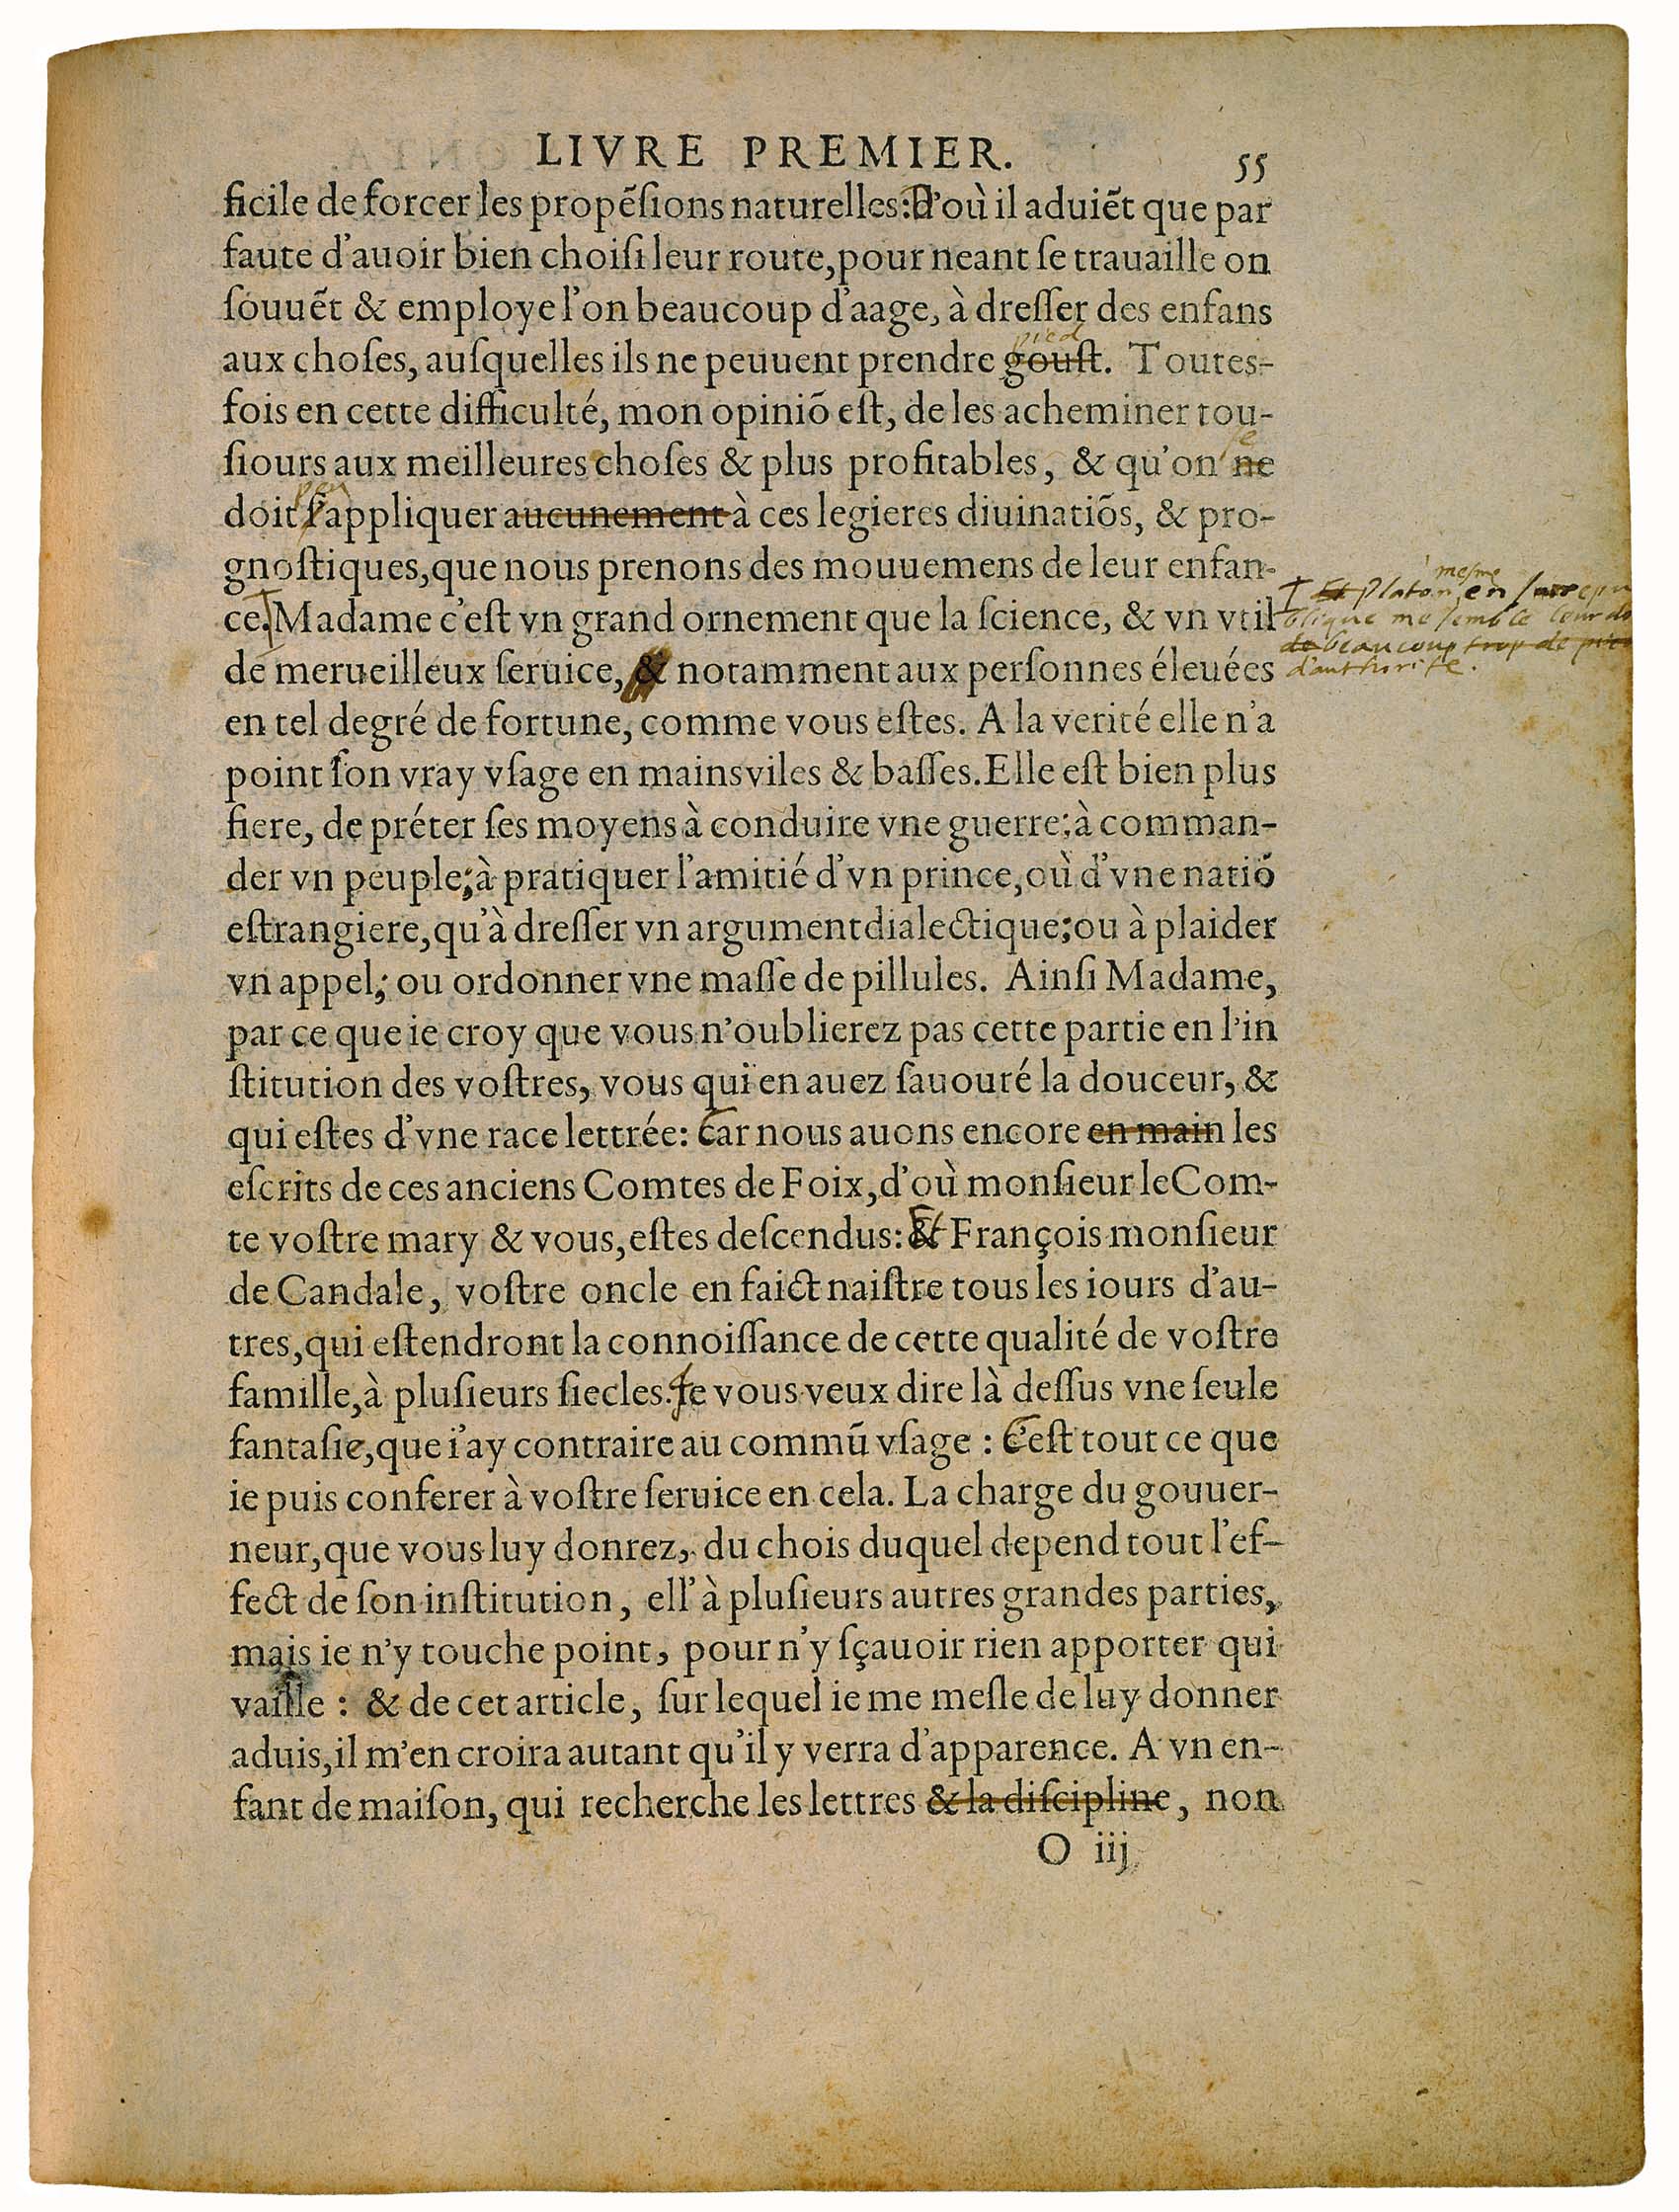 LIVRE PREMIER. 55
ficile de forcer les propẽſions naturelles: D'où il aduiẽt que par
faute d'auoir bien choiſi leur route, pour neant ſe trauaille on
ſouuẽt & employe l'on beaucoup d'aage, à dreſſer des enfans
pied
aux choſes, auſquelles ils ne peuuent prendre gouſt. Toutes-
fois en cette difficulté, mon opiniõ eſt, de les acheminer tou-
se
ſiours aux meilleures choſes & plus profitables, & qu'on ne
peu
doit ſ'appliquer aucunement à ces legieres diuinatiõs, & pro-
gnoſtiques, que nous prenons des mouuemens de leur enfan-
ce. Madame c'eſt vn grand ornement que la ſcience, & vn vtil
de merueilleux ſeruice, & notamment aux perſonnes éleuées
mesme
Et Platon en sa repu
blique me semble leur do
de beaucoup trop de
d'authorité.
en tel degré de fortune, comme vous eſtes. A la verité elle n'a
point ſon vray vſage en mains viles & baſſes. Elle eſt bien plus
fiere, de préter ſes moyens à conduire vne guerre; à comman-
der vn peuple; à pratiquer l'amitié d'vn prince, où d'vne natiõ
eſtrangiere, qu'à dreſſer vn argument dialectique; ou à plaider
vn appel; ou ordonner vne maſſe de pillules. Ainſi Madame,
par ce que ie croy que vous n'oublierez pas cette partie en l'in
ſtitution des voſtres, vous qui en auez ſauouré la douceur, &
qui eſtes d'vne race lettrée: Car nous auons encore en main les
eſcrits de ces anciens Comtes de Foix, d'où monſieur le Com-
te voſtre mary & vous, eſtes deſcendus: Et François monſieur
de Candale, voſtre oncle en faict naiſtre tous les iours d'au-
tres, qui eſtendront la connoiſſance de cette qualité de voſtre
famille, à pluſieurs ſiecles. Je vous veux dire là deſſus vne ſeule
fantaſie, que i'ay contraire au commũ vſage : C'eſt tout ce que
ie puis conferer à voſtre ſeruice en cela. La charge du gouuer-
neur, que vous luy donrez, du chois duquel depend tout l'ef-
fect de ſon inſtitution, ell' à pluſieurs autres grandes parties,
mais ie n'y touche point, pour n'y ſçauoir rien apporter qui
vaille : & de cet article, ſur lequel ie me meſle de luy donner
aduis, il m'en croira autant qu'il y verra d'apparence. A vn en-
fant de maiſon, qui recherche les lettres & la diſcipline, non
O iij